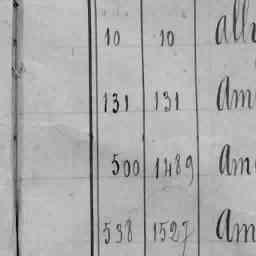 10 10 all
131 131 Am
500 1489 Am
538 1527 Am